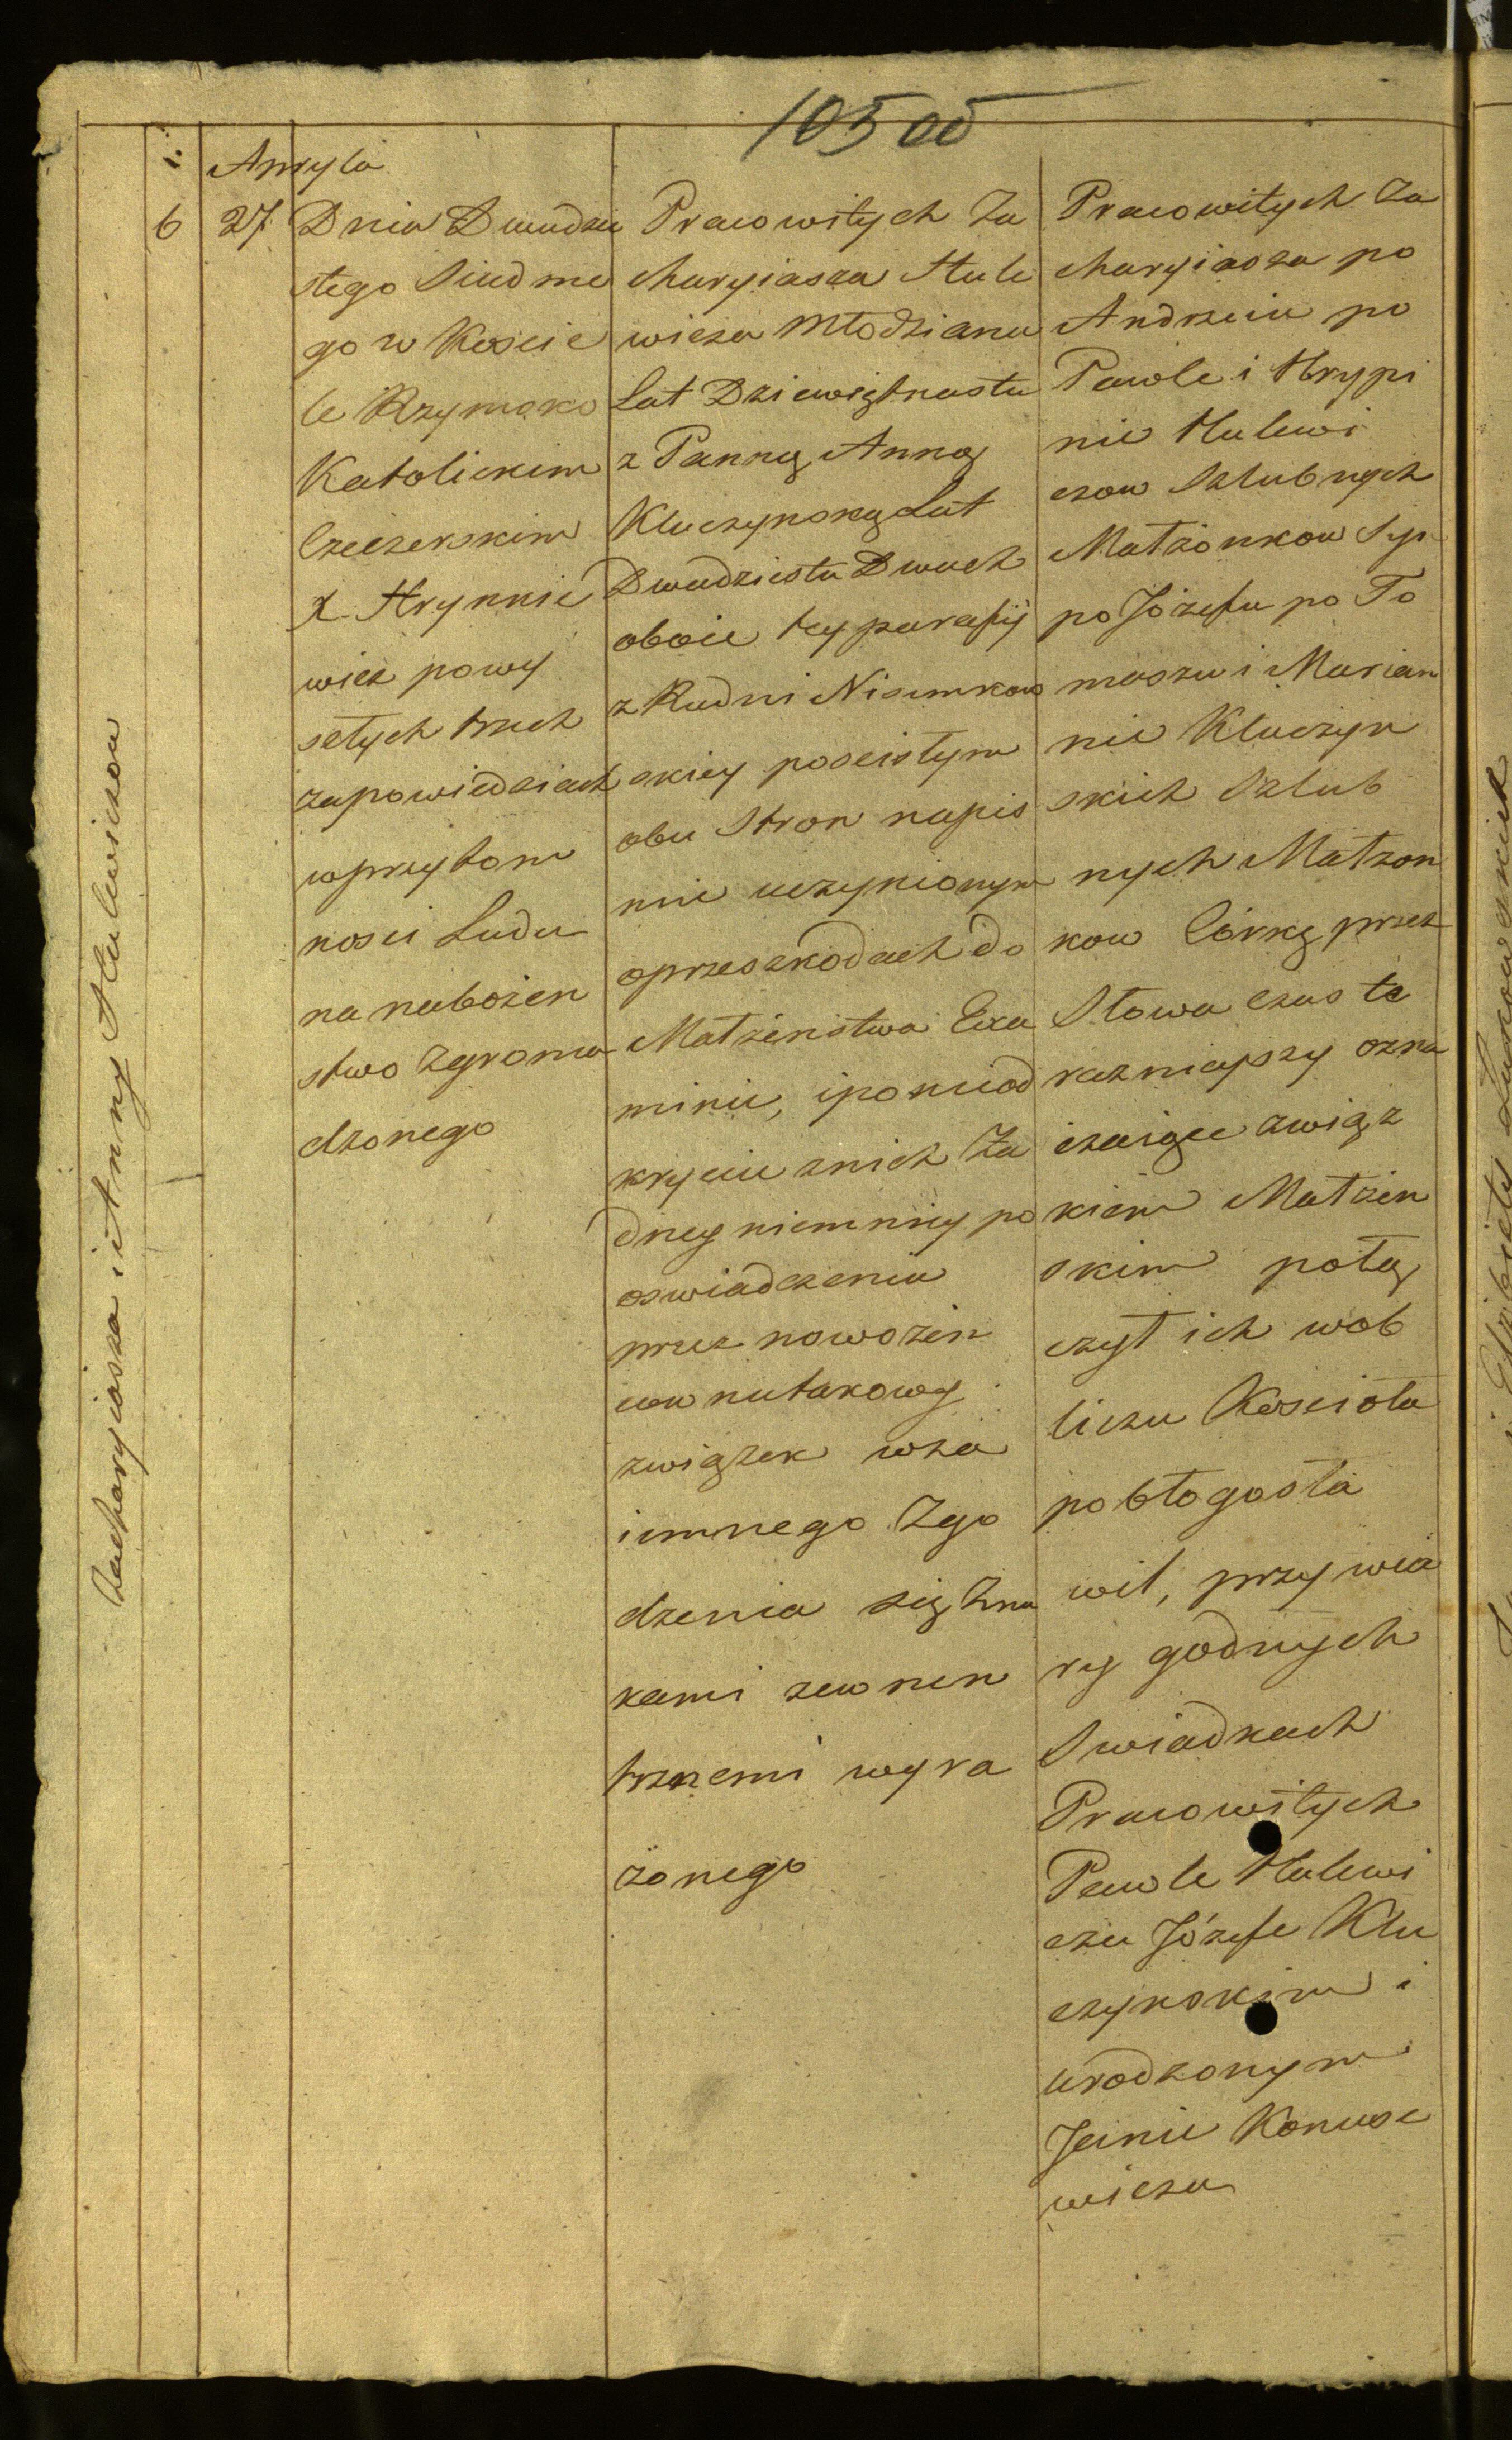 105 об
Apryla
6
27
Dnia Dwudzie
stego Siudme
go w Koscie
le Rzymsko
Katolickim
Czeczerskim
X. Hrynkie
wicz powy
szłych trzech
zapowiedziach
wprzytom
nosci Ludu
na nabożen
stwo zgroma
dzonego
Pracowitych Za
charyiasza Hule
wicza Młodziana
Lat Dziewiętnastu
z Panną Anną
Kluczynską Lat
Dwudziestu Dwuch
oboie tey parafij
z Rudni Nisimkow
skiey poscisłym
obu Stron napis
mie uczynionym
oprzeszkodach do
Matżeństwa Exa
minie, iponieod
kryciu znich Ża
dney niemniey po
oswiadczeniu
przez nowożeń
cow nutakowy
związek wza
iemnego Zgo
dzenia się Zna
kami zewnen
trznemi wyra
żonego
Pracowitych Za
charyiasza po
Andrzeiu po
Pawle i Hrypi
nie Hulewi
czow Szlubnych
Małżonkow Syn
po Józefu po To
maszu i Marian
nie Kluczyn
skich Szlub
nych Małżon
kow Córkę przez
Słowa czas te
raznieyszy ozna
czaiące związ
kiem Małżen
skim połą
czył ich wob
liczu Kościoła
pobłogosła
wił, przy wia
ry godnych
Swiadkach
Pracowitych
Pawle Hulewi
czu Józefe Klu
czynskim i
urodzonym
Janie Konuse
wiczu
Zacharyiasza i Anny Hulewiczow
i Elżbiety